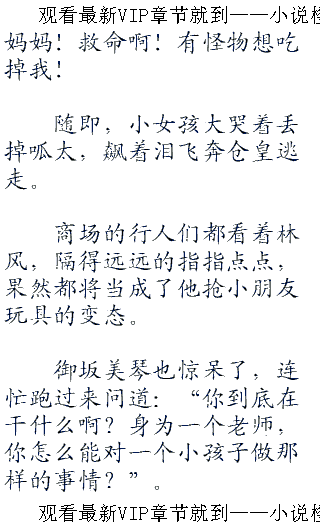 观看最新VIP章节就到——小说
妈妈！救命啊！有怪物想吃
掉我！
随即，小女孩大哭着丢
掉呱太，飙着泪飞奔仓皇逃
走。
商场的行人们都看着林
风，隔得远远的指指点点，
果然都将当成了他抢小朋友
玩具的变态。
御坂美琴也惊呆了，连
忙跑过来问道：“你到底在
干什么啊？身为一个老师，
你怎么能对一个小孩子做那
样的事情？”。
观看最新VIP章节就到——小说